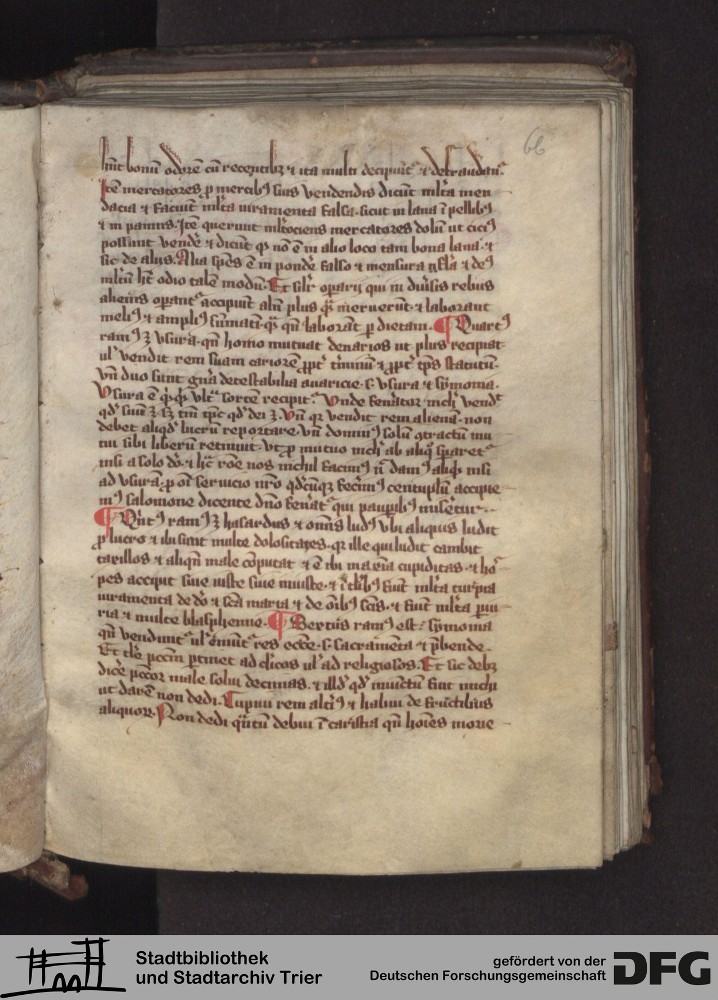 66
hnt bonu odore cu recentibz & ita multi decipiut & defraudat
Ite mercatores p mercibz suis vendendis dicut mlta men
dacia & faciut mlta iuramenta falsa sicut in lana i pellibz
& in pannis. Ite querunt mltociens mercatores dolu ut citi9
possint vende & dicut q no e in alio loco tam bona lana &
sic de aliis. Alia spes e in ponde falso & mensura & de9
mltu ht odio tale modu. Et silr operarii qui in diuisis rebus
alienis operant accipiut aliud plus q meruerut & laborant
meli9 & ampli9 q qn laborat p dietam. ¶ Quart9
ram9 e vsura qn homo mutuat denarios ut plus recipiat
ul vendit rem suam cariore ppt tminu & ppt tps statutu.
vn duo sunt gna detestabilia auaricie s vsura & symonia.
Vsura e q vlt sorte recipit. Vnde fenator nichl vend
qd suu e sz tm tps qd dei e. Vn q vendit rem aliena non
debet aliqd lucru reportare vn domin9 solu ptractu mu
tui sibi liberu retinuit. vt p mutuo nichl ab aliq speret
nisi a solo do & hc roe nos nichil facim9 n dam9 aliqd nisi
ad vsura p oi seruicio nro qdcuqz fecim9 centuplu accipie
m9 salomone dicente dno fenat qui paupibz miseretur
¶ Quit9 ram9 e hasardus & omis lud9 vbi aliquis ludit
p lucro & ibi sunt multe dolositates. qr ille qui ludit cambit
taxillos & aliqn male coputat & e ibi maxia cupiditas & ho
pes accipit siue iuste siue iniuste & i tlibz fiut mlta turpia
iuramenta de do & sca maria & de oibz scis & fiut mlta piu
ria & multe blasphemie. ¶ Sextus ram9 est symonia
qn vendunt ul emut res ecce s sacrameta & pbende.
Et tle pccm ptinet ad clicos ul ad religiosos. Et sic debz
dice pccor male solui decimas & illd qd iniunctu fuit michi
ut dare non dedi. Cupiui rem alti9 & habui de fructibus
aliquor. Non dedi qntu debui i caristia qn hoies morie
Stadtbibliothek
und Stadtarchiv Trier
gefördert von der
Deutschen Forschungsgemeinschaft
DFG